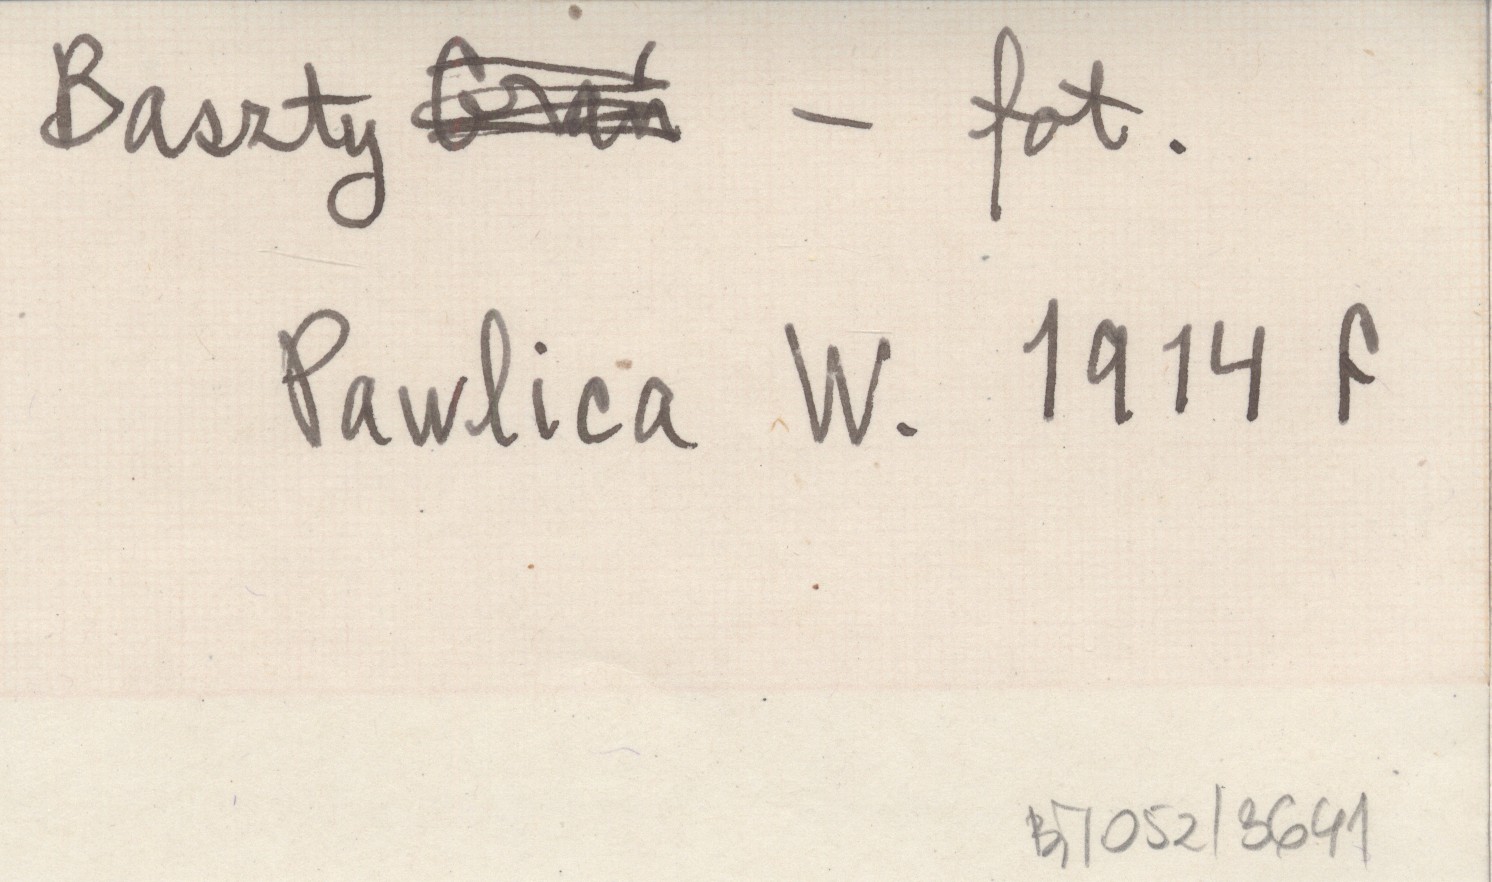 Baszty Grań – fot.
Pawlica W. 1914 r
B7/052/3641